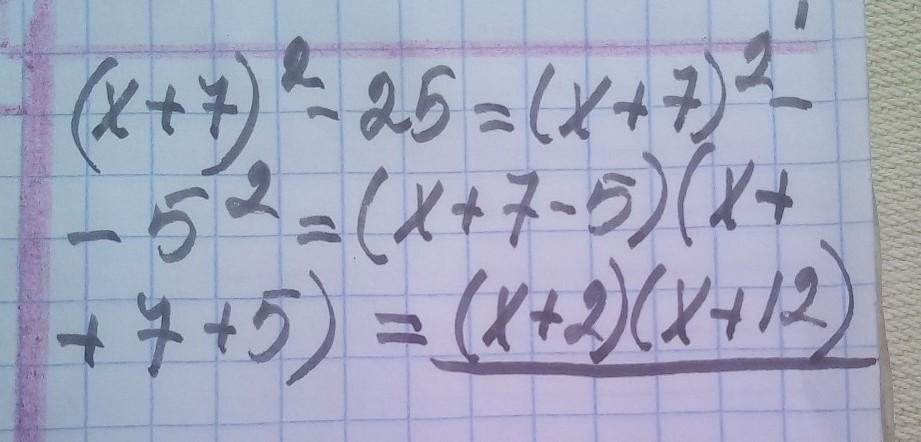 (x+7)² - 25 = (x+7)² -
- 5² = (x+7-5)(x+
+ 7 +5) = (x+2)(x+12)